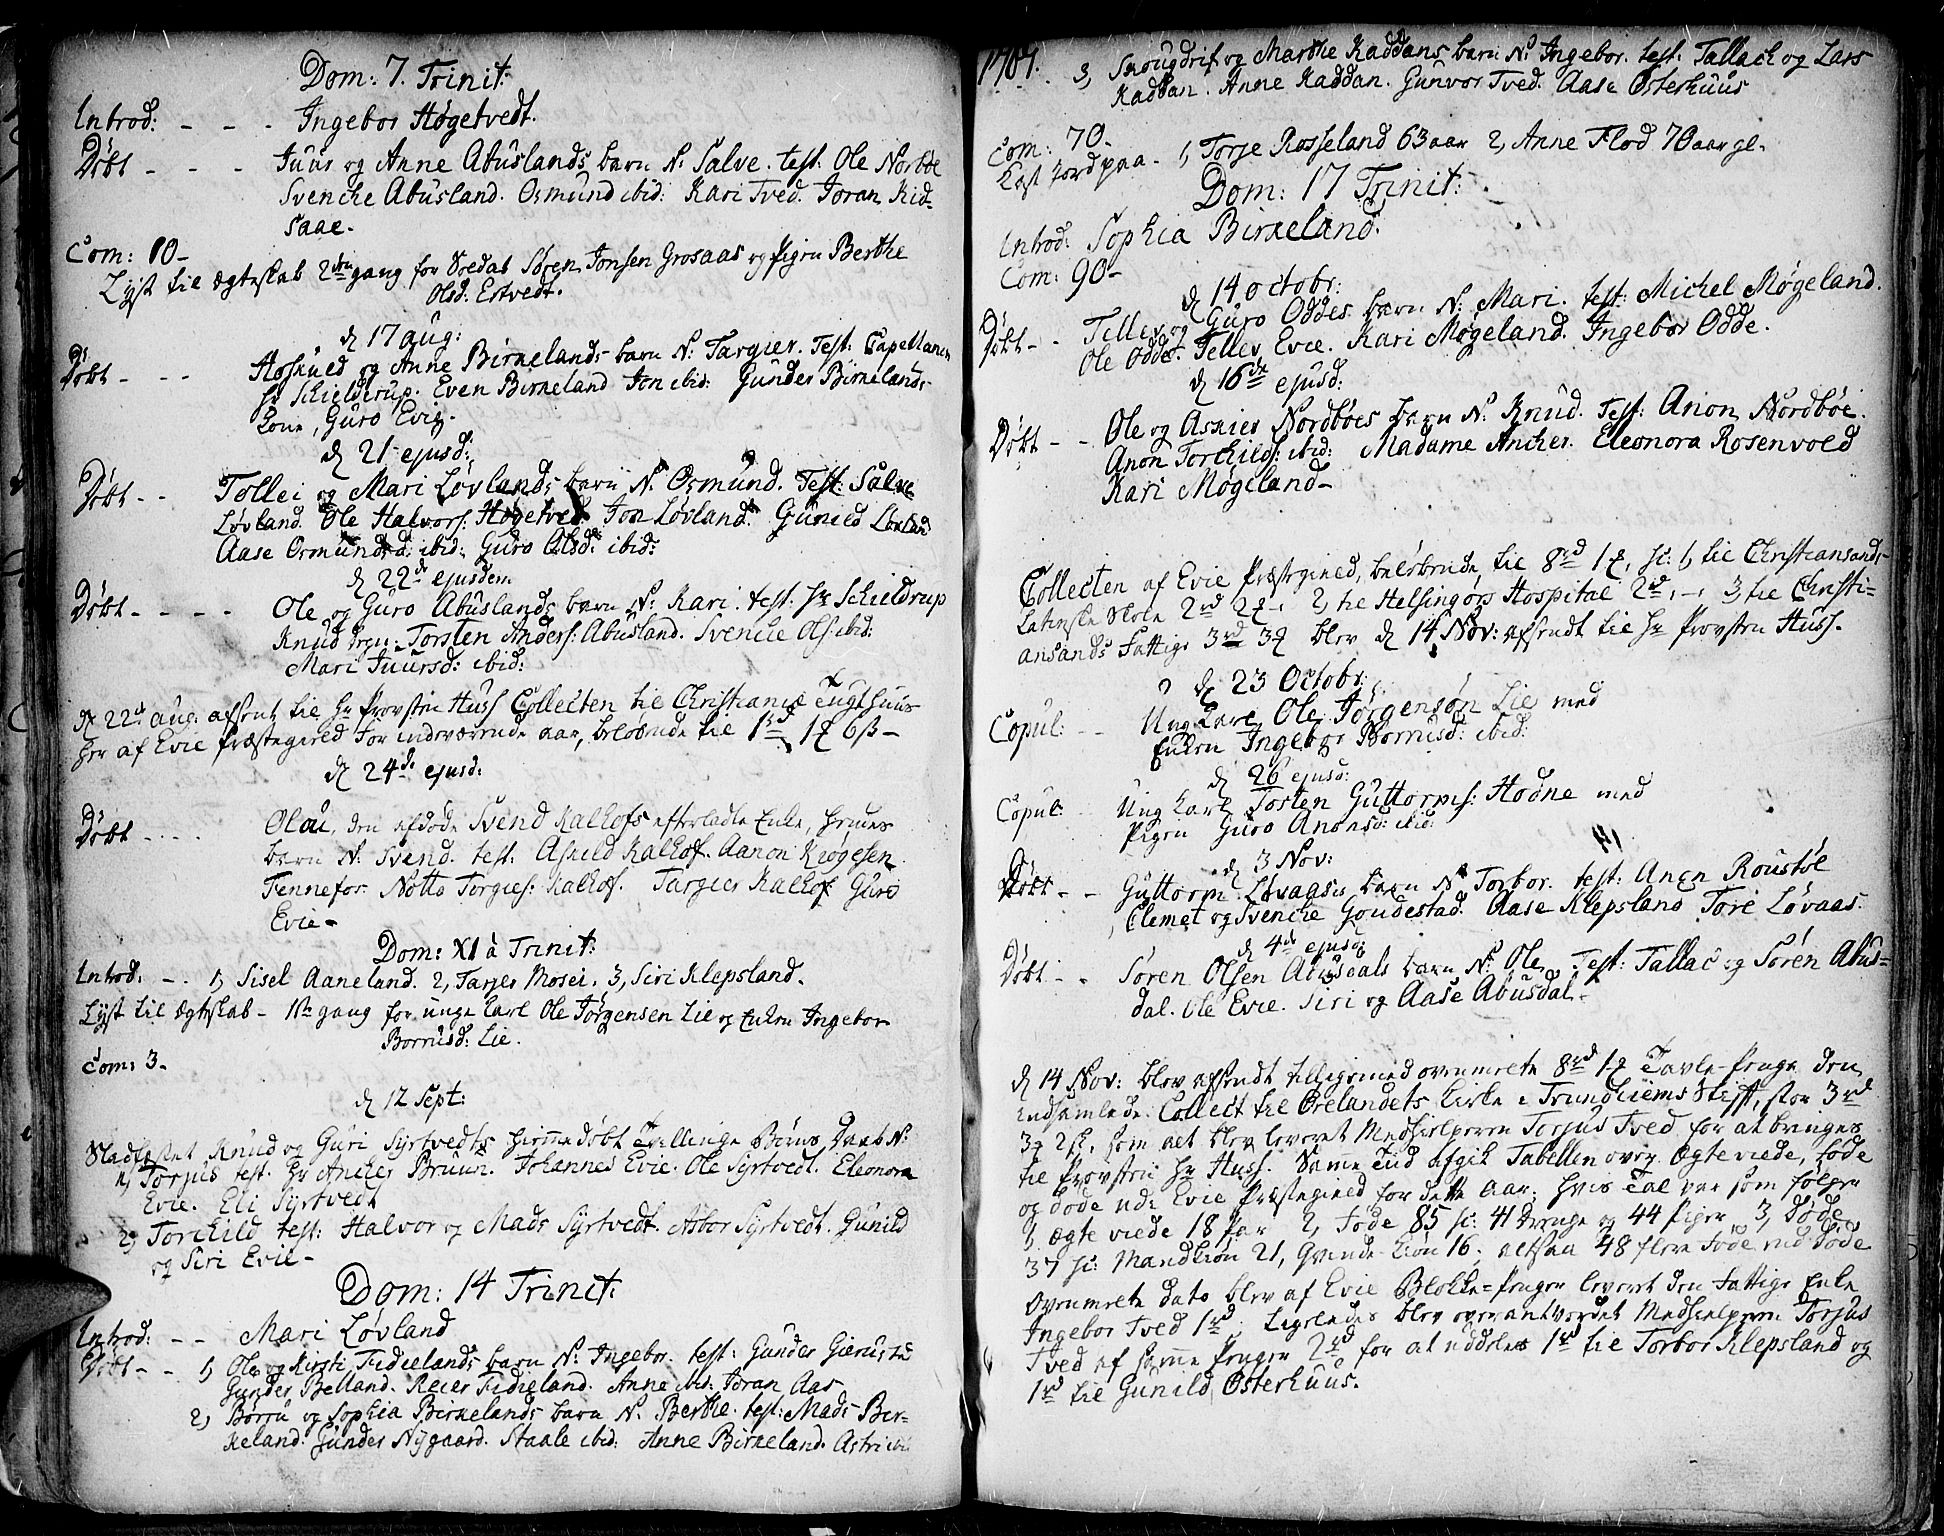 Dom: 7. Trinit:
Introd: - - - Ingebor Høgetvedt.
Døbt - - - Juur og Anne Abuslands barn N: Salve. test: Ole Norbøe
Svenche Abusland. Osmund ibid: Kari Tved. Joran Kid-
saae.
Com: 80-
Lyst til Ægteskab 2den gang for Soldat Søren Jonsen Grosaas og Pigen Berthe
Olsd: Estvedt.
d 17 aug:
Døbt - - - Hoskuld og Anne Birkelands barn N: Targier. Test: Capellanen
Hr Schielderup. Even Birkeland Jon ibid: Gunder Birkelands
Kone, Guro Evie.
d 21 ejusd:
Døbt - - Tollei og Mari Løvlands barn N: Osmund. Test: Salve
Løvland. Ole Halvors: Høgetved. Jon Løvland. Gunild Løvland
Aase Osmundsd: ibid: Guro Olsd: ibid:
d 22de ejusdem
Døbt - - - - Ole og Guro Abuslands barn N: Kari. test: Hr Schieldrup
Knud ibid. Torsten Anders: Abusland. Svenche Ols: ibid:
Mari Juursd: ibid:
d 22de aug: afsent til Hr Provsten Huss Collecten til Christiania Tugthuus
her af Evie Præstegield for indeværende aar, beløbende til 1rd 1 6s-
d 24de ejusd:
Døbt - - - - Olau, den afdøde Svend Kalhofs efterladte Enke, hendes
barn N: Svend. test: Askild Kalhof. Aanon Kiøgesen
Tennefos. Notto Torgies: Kalhof. Targier Kalhof. Guro
Evie-
Dom: XI à Trinit:
Introd: - - 1, Sisel Aaneland. 2, Tarjer Mosei. 3, Siri Klepsland.
Lyst til Ægteskab - 1ste gang for unge Karl Ole Jørgensen Lie og Enken Ingebor
Borrusd: Lie.
Com: 3-
d 12 Sept:
Stadfæstet Knud og Guri Syrtvedts hiemmedøbt Tvillinge Børn, Daab N:
1, Torjus test. Hr Ancher Bruun. Johannes Evie. Ole Syrtvedt. Eleonora
Evie. Eli Syrtvedt
2, Torchild test: Halvor og Mads Syrtvedt. Asbor Syrtvedt. Gunild
og Siri Evie-
Dom: 14 Trinit:
Introd: - - Mari Løvland
Døbt - - 1, Ole og Kirsti Fidielands barn N: Ingebor. test: Gunder
Gunder Belland. Reier Fidieland. Anne ibid: Joran Aas
2, Børru og Sophia Birkelands barn N: Berthe. test: Mads Bir-
keland. Gunder Nygaard. Staale ibid: Anne Birkeland. Astri ibid
1789.
3, Skougdrif og Marthe Kaddans barn N: Ingebor. test: Tallach og Lars
Kaddan. Anne Kaddan. Gunvor Tved. Aase Østerhuus
Com: 70-
Kast Jord paa - 1, Torje Rosseland 63 aar 2, Anne Flod 70 aar gl-
Dom: 17 Trinit:
Introd: Sophia Birkeland.
Com: 90-
d 14 octobr:
Døbt - - Tellev og Guro Oddes barn N: Mari. test: Michel Møgeland.
Ole Odde. Tellev Evie. Kari Møgeland. Ingebor Odde.
d 16de ejusd:
Døbt - - Ole og Asnier Nordbøes barn N: Knud. Test: Anon Nordbøe.
Anon Torchilds: ibid: Madame Ancher. Eleonora Rosenvold
Kari Møgeland-
Collecten af Evie Præstegield, beløbende til 8rd 1, sc: 1, til Christiansands
Latinske Skole 2rd 2 2, til Helsingørs Hospital 2rd, 3, til Christi-
ansands Fattige 3rd 3 blev d 14 Nov: afsendt til Hr Provsten Huss.
d 23 Octobr:
Copul: - - Ung Karl Ole Jørgensøn Lie med
Enken Ingebor Borrusd: ibid:
d 26 ejusd:
Copul: Ung Karl Torsten Guttorms: Hodne med
Pigen Guro Anonsd: ibid:
d 3 Nov:
Døbt - - Guttorm Løvaases barn N: Torbor. test: Anon Roustøl
Clemet og Svenche Goudestad. Aase Klepsland Tore Løvaas-
d 4de ejusd:
Døbt - - Søren Olsen Abusdals barn N: Ole. Test: Tallac og Søren Abus-
dal. Ole Evie. Siri og Aase Abusdal-
d 14 Nov: blev afsendt tilligemed ovenmelte 8rd 1 Tavle-Penge den
indsamlede Collect til Ørelandets Kirke i Trundhiems Stift, stor 3rd
3 2s, som alt blev leveret Medhielperen Torjus Tved for at bringes
til Provsten Hr Huss. Samme Tiid afgik Tabellen over Ægteviede, fødde
og døde udi Evie Præstegield for dette Aar, hvis Tal var som følger
1, Ægteviede 18 Par 2, Fødde 85 sc: 41 Drenge og 44 Piger 3, Døde
37 sc: Mandkiøn 21, Qvinde-kiøn 16, altsaa 48 flere Fødde end Døde
Ovenmelte dato blev af Evie Blokke-Penger leveret den Fattige Enke
Ingebor Tved 1rd. Ligeledes blev overantvordet Medhielperen Torjus
Tved af samme Penger 2rd for at uddeles 1rd til Torbor Klepsland og
1rd til Gunild Østerhuus.